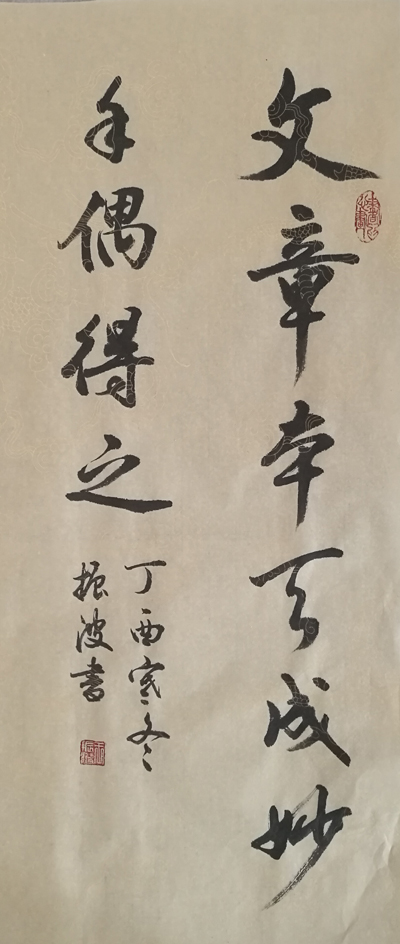 文章本天成妙
手偶得之
丁酉寒冬
振波书